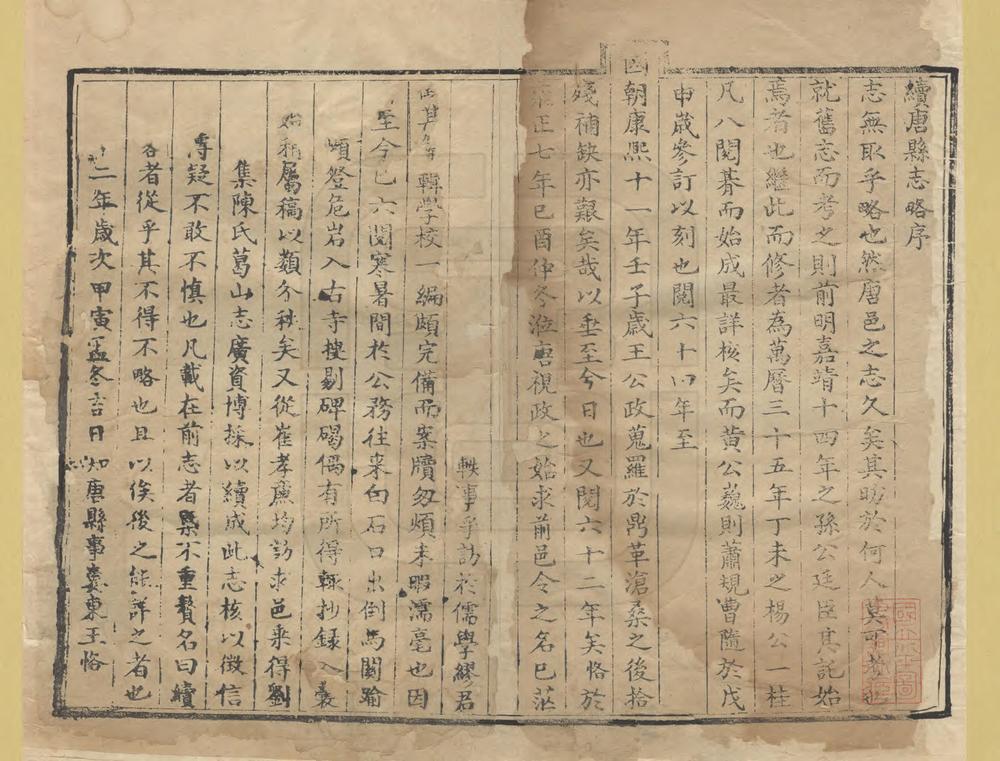 續唐縣志略序
志無取乎略也然唐邑之志久矣其昉於何人莫可考也
就舊志而考之則前明嘉靖十四年之孫公廷臣其託始
焉者也繼此而修者為萬曆三十五年丁未之楊公一桂
凡八閱朞而始成最詳核矣而黄公巍則蕭規曹隨於戊
申歲參訂以刻也閱六十四年至
國朝康熙十一年壬子歲王公政蒐羅於鼎革滄桑之後拾
殘補缺亦艱矣哉以垂至今日也又閱六十二年矣恪於
雍正七年己酉仲冬涖唐視政之始求前邑令之名已茫
軼事乎訪於儒學繆君
其 輯學校一編頗完備而案牘匆煩未暇濡毫也因
至今已六閱寒暑間於公務往来向石口出倒馬關踰
嶺登危岩入古寺搜剔碑碣偶有所得輒抄錄入囊
始稍屬稿以類分秩矣又從崔孝廉均訪求邑乗得劉
集陳氏葛山志廣資博採以續成此志核以徴信
傳疑不敢不慎也凡載在前志者槩不重贅名曰續
者從乎其不得不略也且以俟後之能詳之者也
二年歲次甲寅孟冬吉日知唐縣事婁東王恪